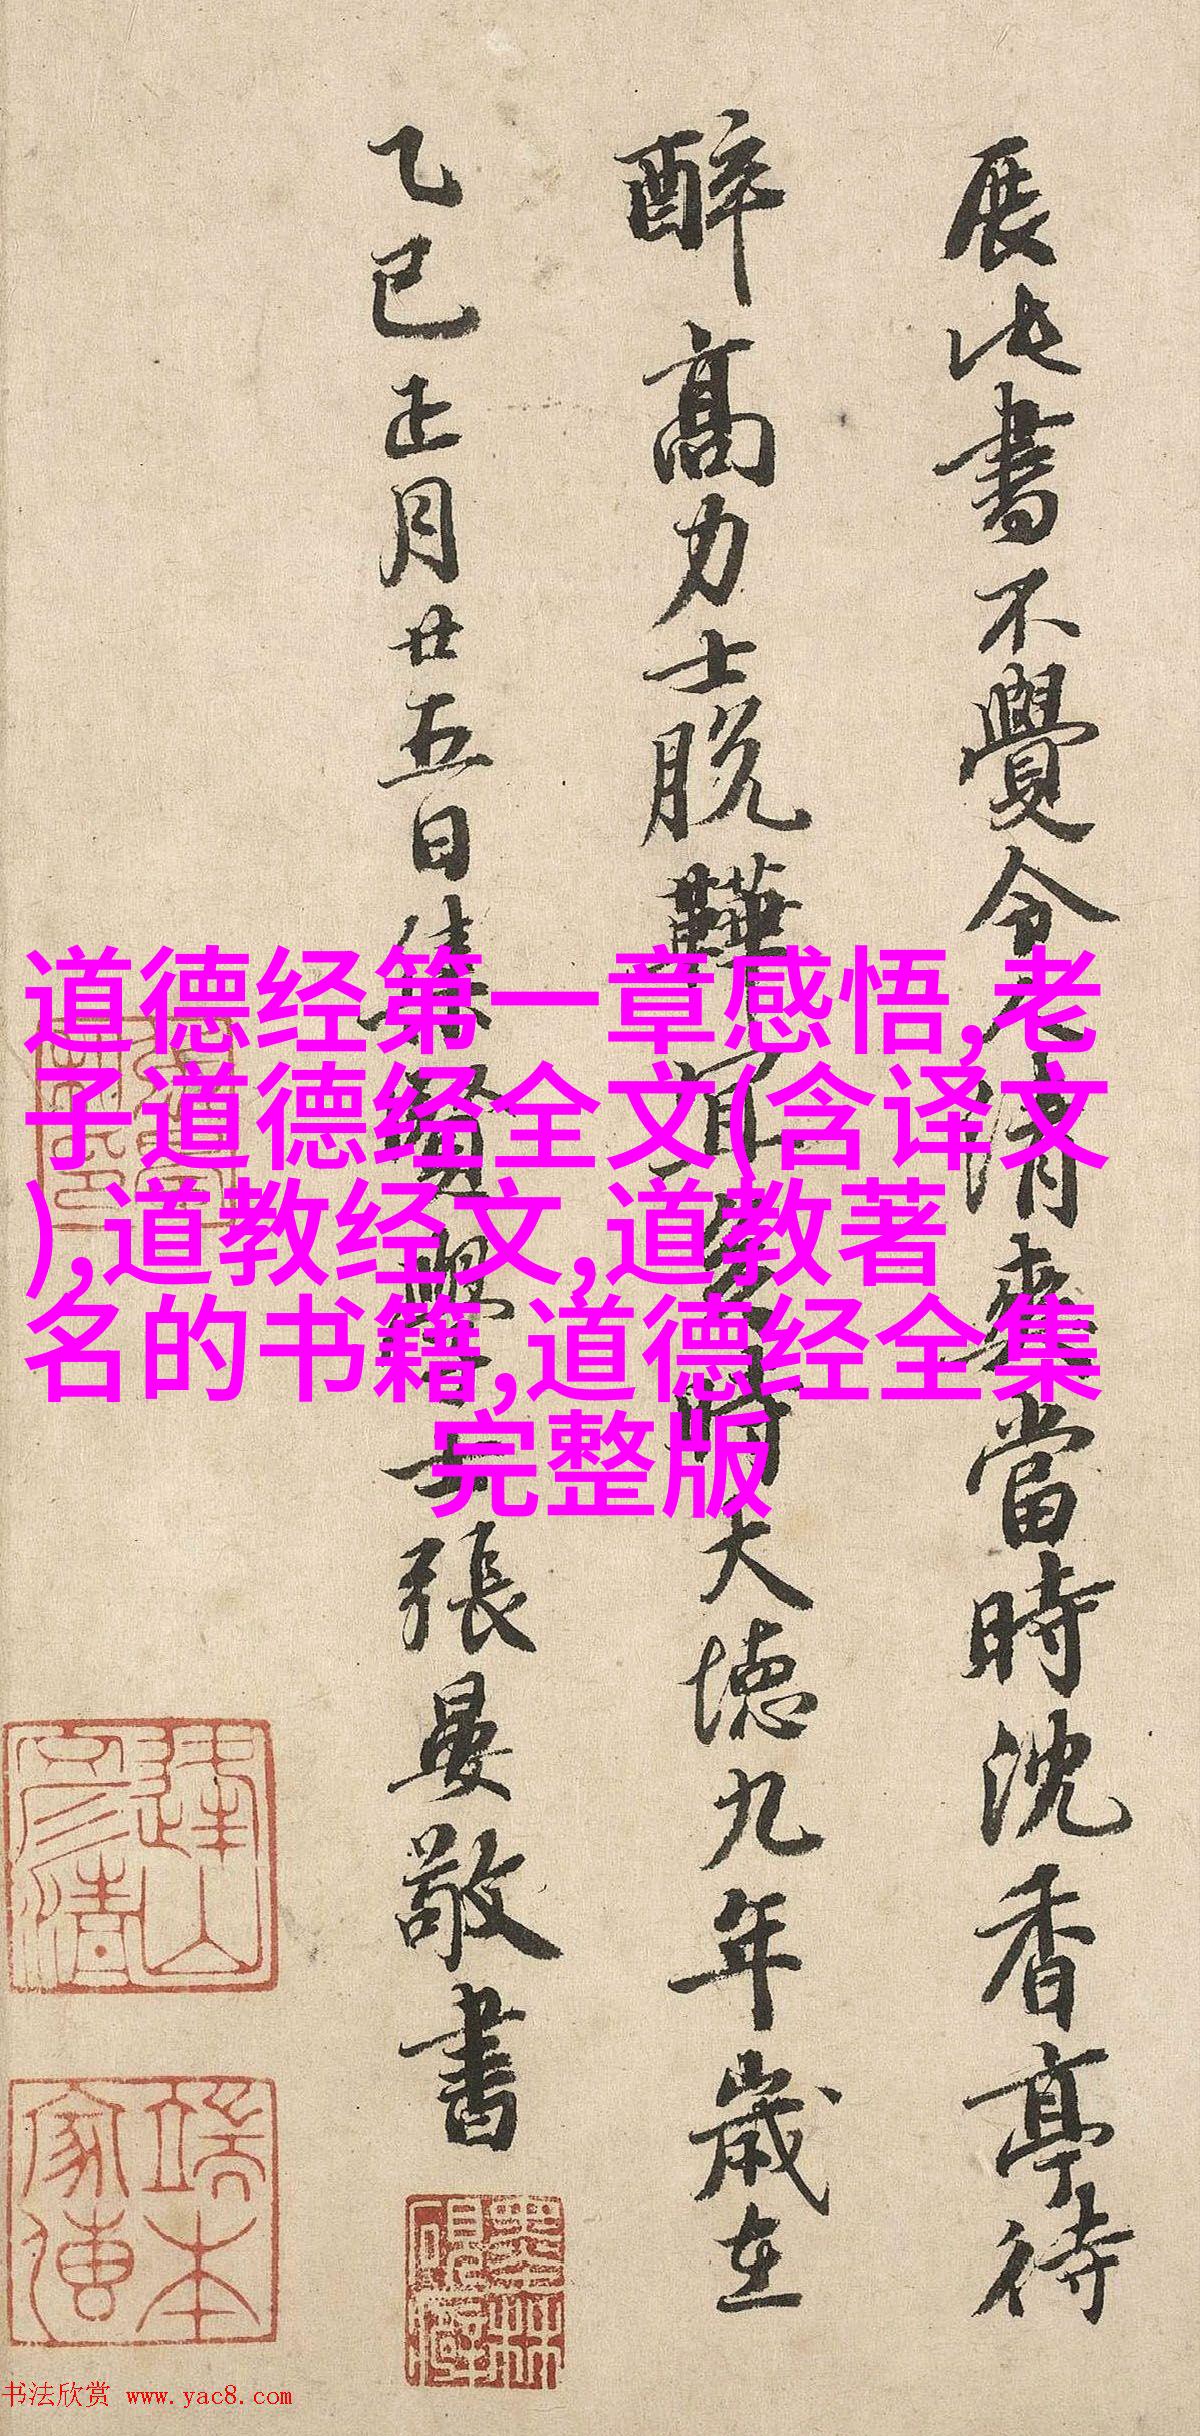 展此書不覺令人清爽當時沈香亭待
醉高力士脱鞾宜矣時大德九年歲在
乙巳正月廿五日集賢學士張晏敬書
道德经第一章感悟,老
子道德经全文(含译文
),道教经文,道教著
名的书籍,道德经全集
完整版
端本家傳
书法欣赏 www.yac8.com